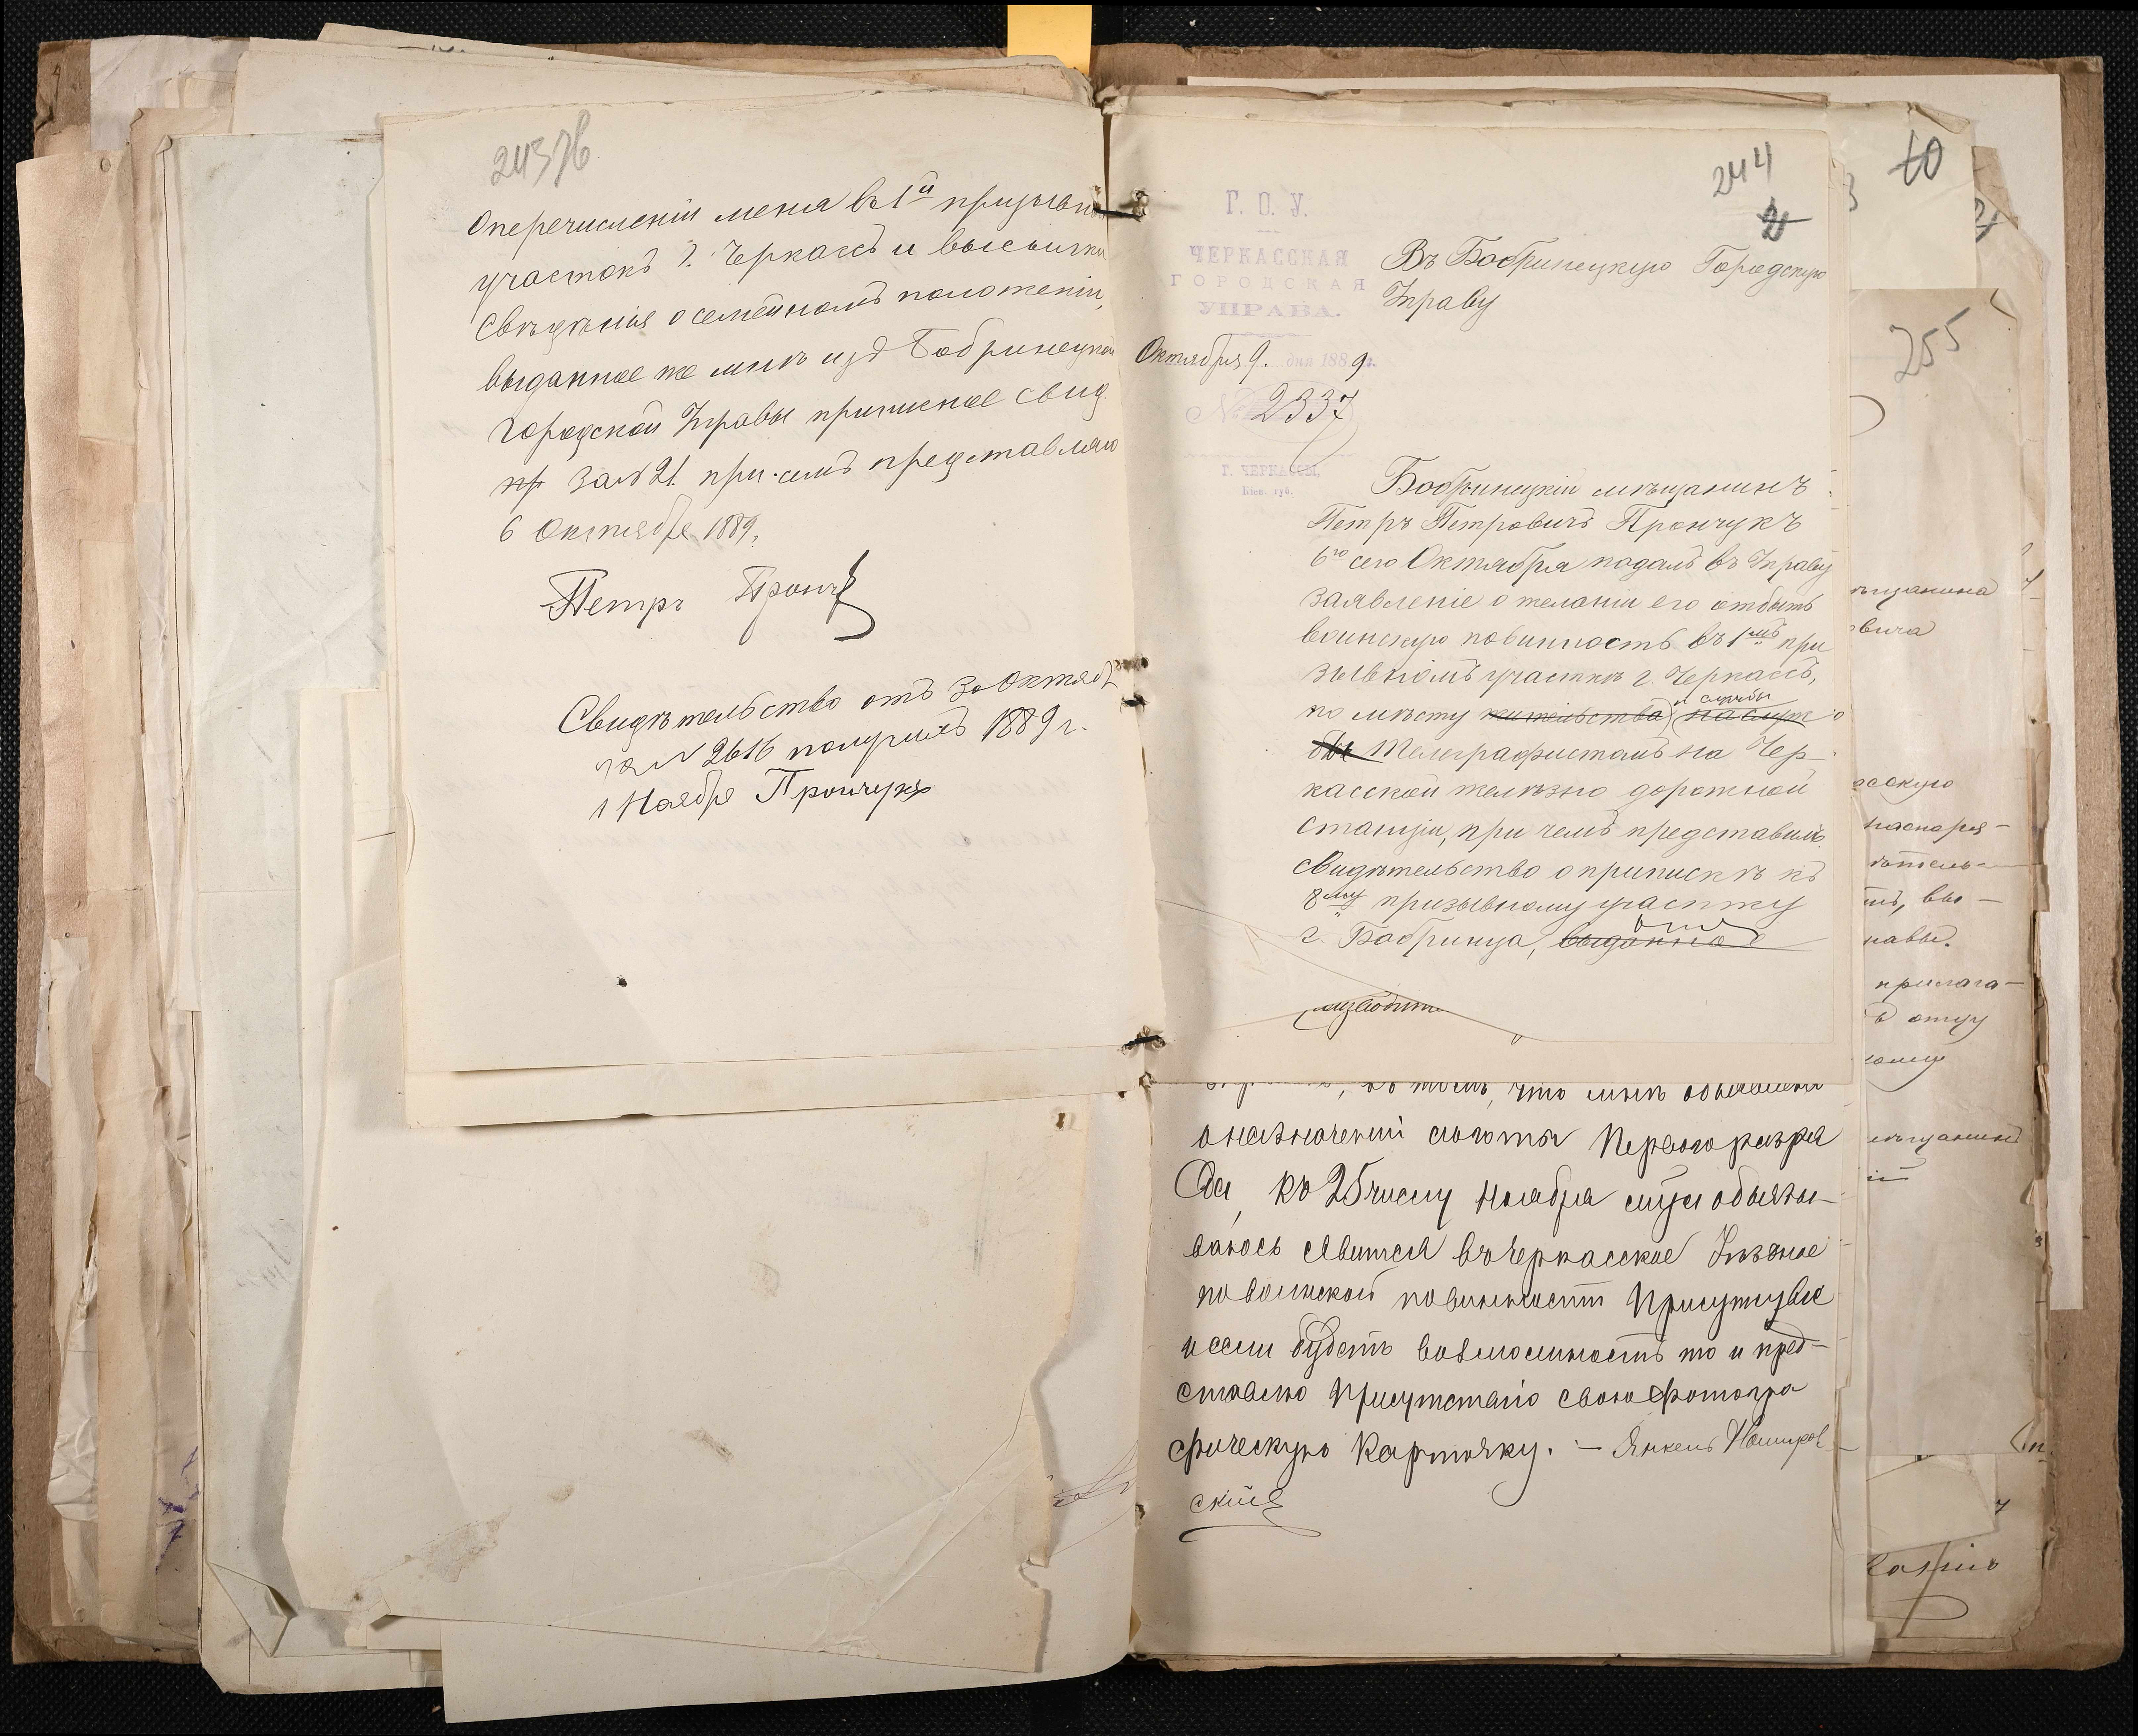 243 об
О перечисленіи меня въ 1й призывной
участокъ г. Черкассъ и высылки
свѣдѣнія о семейномъ положеніи,
выданное же мнѣ изъ Бобринецкой
Городской Управы приписное свид.
за № 21. при семъ представляю
6 Октября 1889.
Петръ Пронч
Свидѣтельство отъ 30 Октяб
за № 2616 получилъ 1889 г.
1 Ноября Прончукъ
244
2
Г. О. У.
ЧЕРКАССКАЯ
ГОРОДСКАЯ
УПРАВА.
Октября 9. дня 1889 г.
№ 2337
Г. ЧЕРКАССЫ,
Кіев. губ.
Въ Бобринецкую Городскую
Управу
Бобринецкій мѣщанинъ
Петръ Петровичъ Прончукъ
6го сего Октября подалъ въ Управу
заявленіе о желаніи его отбыть
воинскую повинность въ 1мъ при
зывномъ участкѣ г. Черкассъ,
по мѣсту жительства и службы
телеграфистомъ на Чер-
касской желѣзно дорожной
станціи, при чемъ представилъ
свидѣтельство о припискѣ къ
8му призывному участку
г. Бобринца, выданно
что мнѣ объявлено
о назначеніи съѣзда Первого разря
да, къ 25 числу Ноября симъ обязы-
ваюсь явится въ Черкасское Уѣздное
по воинской повинности Присутствіе
и если будетъ возможность то и пред-
ставлю Присутствію свою фотогра
фическую карточку. — Янкель
скій
10
255
ѣщанина
вича
сскую
распоря-
дѣтель-
вы-
равы.
прилага-
отцу
мѣщанинъ
ій